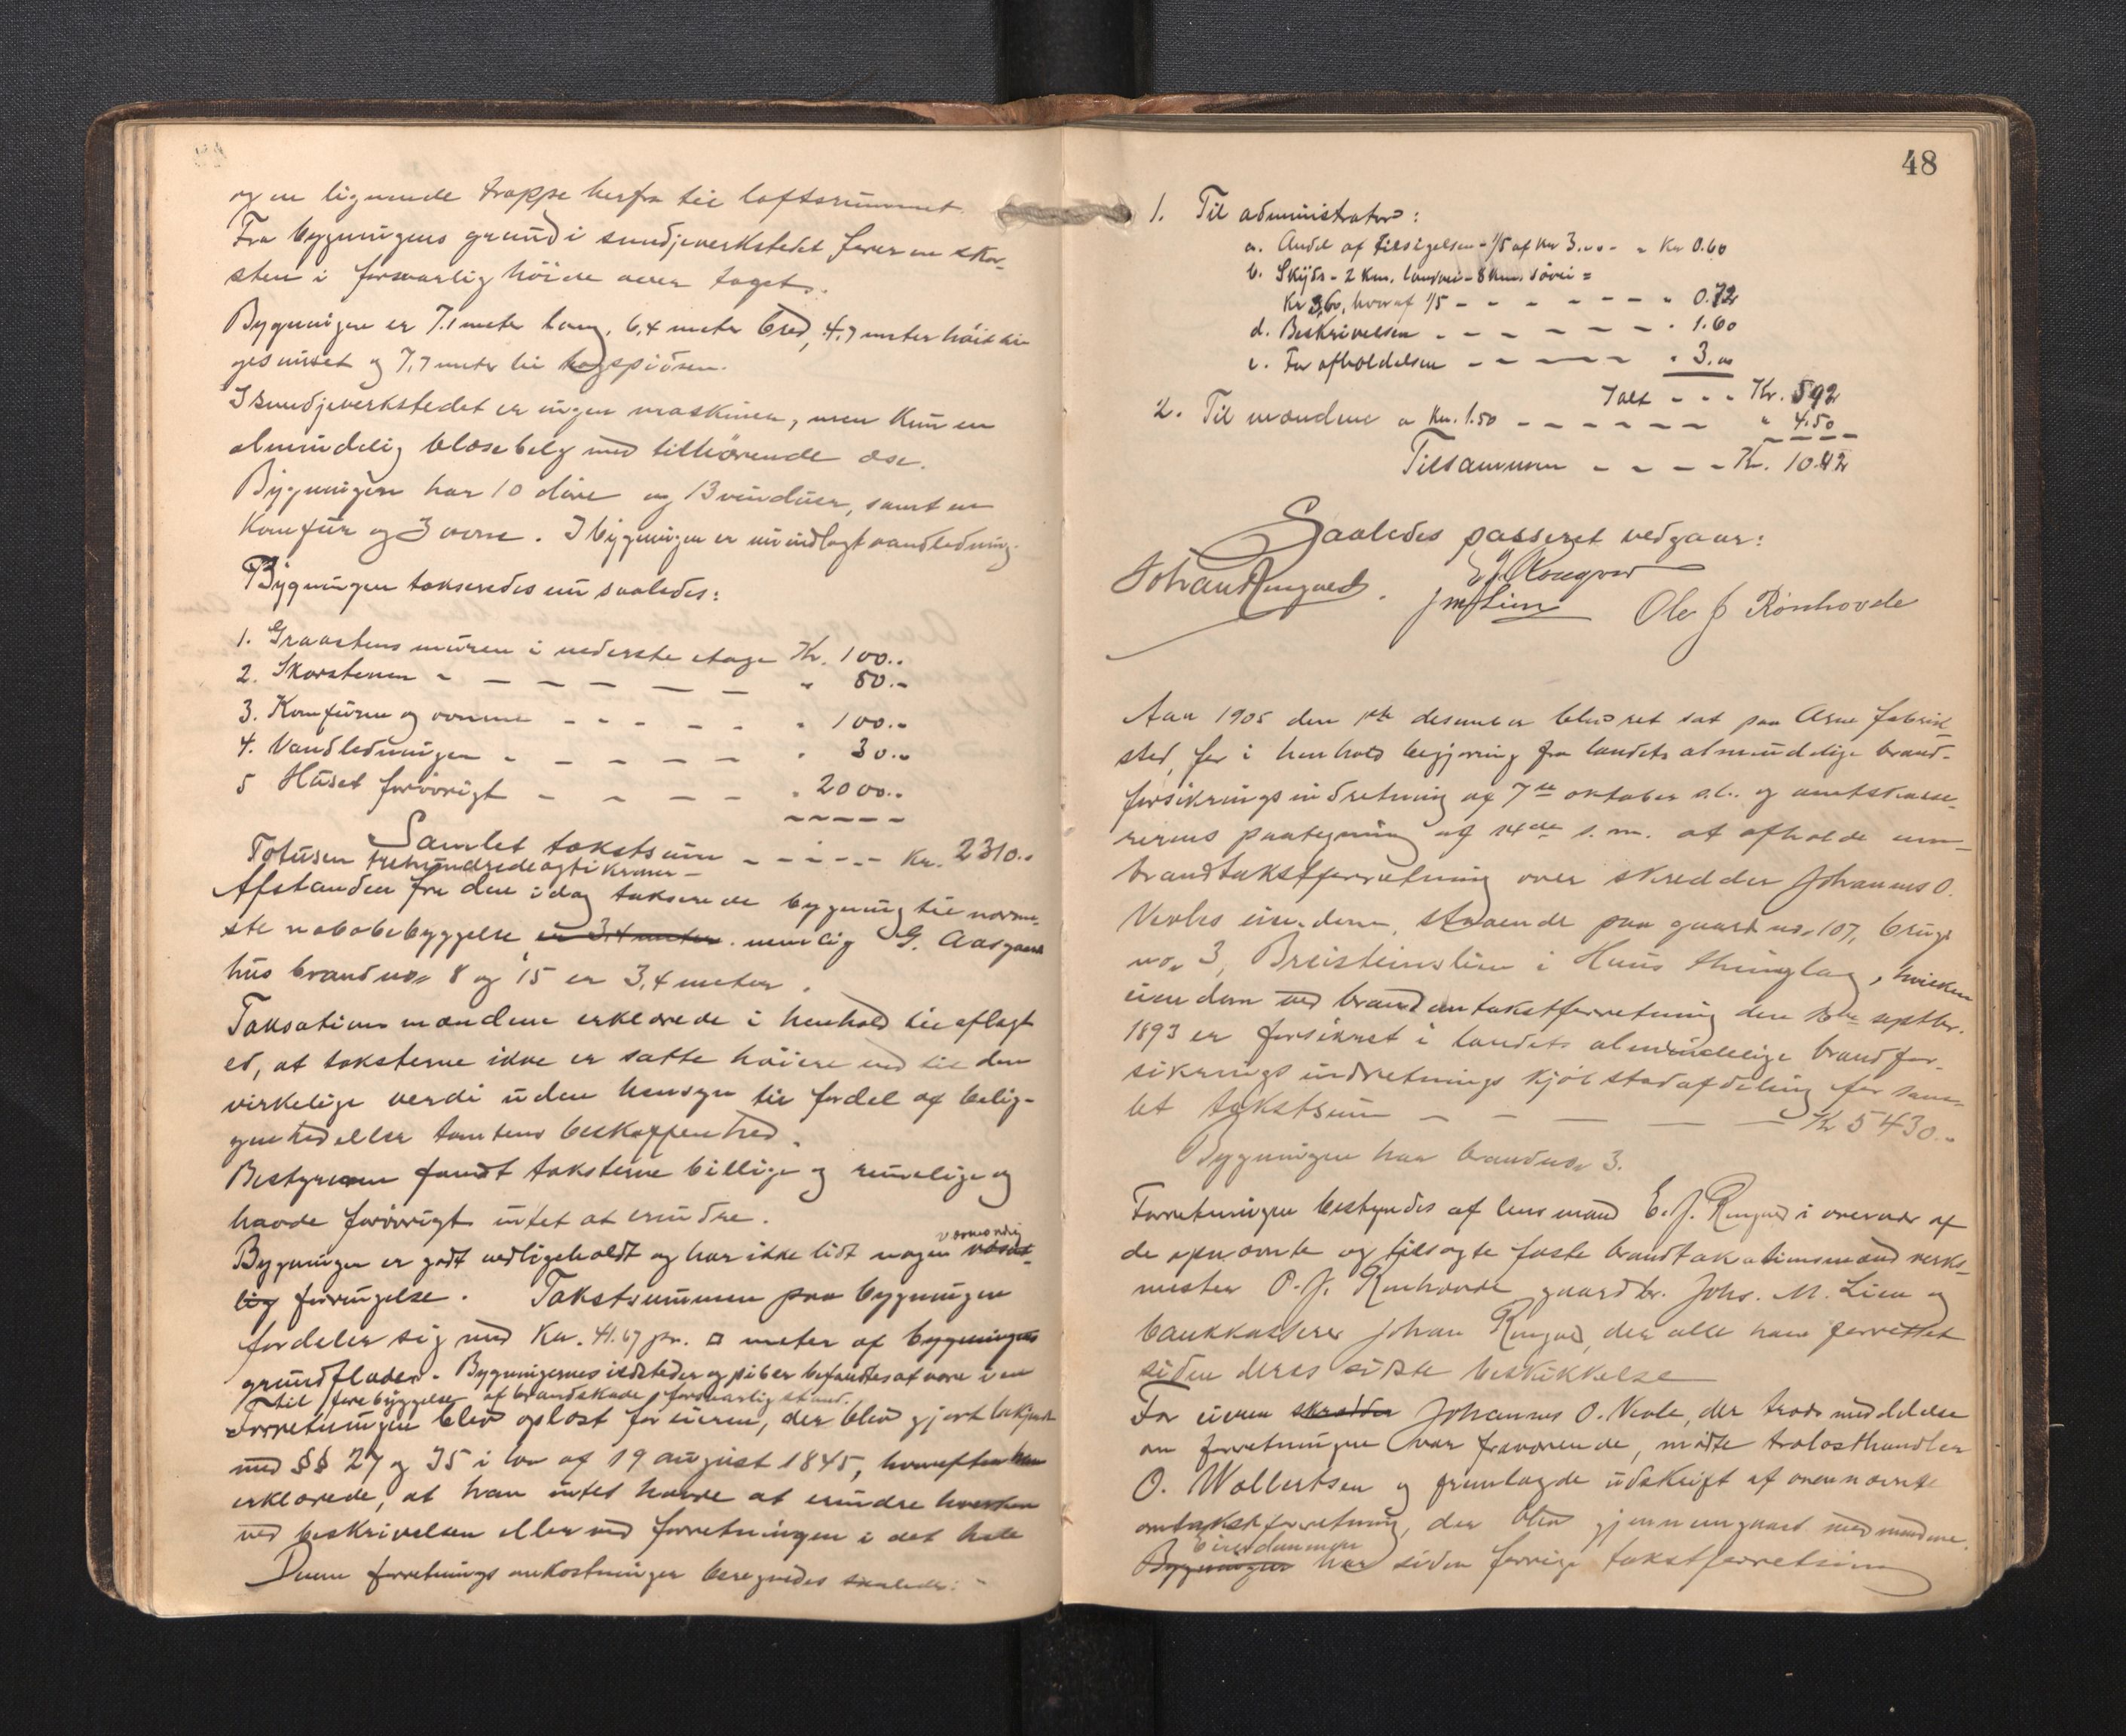 og en lignende trappe herfra til loftsrummet.
Fra bygningens grund i smedjeverkstedet fører en skor-
sten i forsvarlig høide over taget.
Bygningen er 7.1 meter lang, 6,4 meter bred, 4,7 meter høit til
gesimset og 7,7 meter til tagspidsen.
I smedjeverkstedet er ingen maskiner, men kun en
almindelig blæsebelg med tilhørende
Bygningen har 10 døre og 13 vinduer, samt en
Komfür og 3 ovne. I bygningen er nu indlagt vandledning.
Bygningen takseredes nu saaledes:
1. Graastensmuren i nederste etage Kr. 100..
2. Skorstenen - - - - - - - " 80.-
3. Komfüren og ovnene - - - - - " 100.-
4. Vandledningen - - - - - - " 30..
5 Huset forøvrigt - - - - - " 2000..
Samlet takstsum - - - - - Kr. 2310..
Totusen trehundredeogti kroner -
Afstanden fra den idag takserede bygning til nærme-
ste nabobebyggelse er 3,4 meter. nemlig G. Aasgaard
hus brand no. 8 og 15 er 3,4 meter.
Taksationsmændene erklærede i henhold til aflagt
ed, at taksterne ikke er satte høiere end til den
virkelige verdi uden hensyn til fordel af belig-
genhed eller tomtens beskaffenhed.
Bestyreren fandt taksterne billige og rimelige og
havde forøvrigt intet at erindre.
væsendtlig
Bygningen er godt vedligeholdt og har ikke lidt nogen
lig foringelse. Takstsummen paa bygningen
fordeler sig med Kr. 41.67 pr. □ meter af bygningens
grundflader. Bygningernes ildsteder og piber befandtes at være i en
til forebyggelse af brandskade forsvarlig stand.
Forretningen blev oplæst for eieren, der blev gjort bekjendt
med §§ 27 og 35 i lov af 19 august 1845, hvorefter han
erklærede, at han intet havde at erindre hverken
ved beskrivelsen eller ved forretningen i det hele
Denne forretnings omkostninger beregnedes saaledes: -
48
1. Til administrator:
a. Andel af tilsigelsen - 1/5 af Kr 3.00 - " Kr 0.60
b. Skyds - 2 Km. landvei - 8 Km. søvei =
Kr 3,60, hvoraf 1/5 - - - - - - - " 0.72
d. Beskrivelsen - - - - - - - " 1.60
e. For afholdelsen - - - - - " 3.00
Ialt - - - Kr. 592
2. Til mændene a Kr. 1.50 - - - - - - " 4.50
Tilsammen - - - - Kr. 10.42
Saaledes passeret vedgaar:
Johan Ringvad. J M Lien Ole J Rönhovde
Aar 1905 den 1ste desember blev ret sat paa Arne fabrik-
sted, for i henhold begjæring fra landets almindelige brand-
forsikringsindretning af 7de oktober d.å. og amtskasse-
rerens paategning af 14de s.m. at afholde om-
brandtakstforretning over skredder Johannes O.
Veolas eiendom, staaende paa gaards no. 107, brugs
no. 3, Breisteinslien i Huus thinglag, hvilken
eiendom ved brandomtakstforretning den septbr.
1893 er forsikret i landets almindelige brandfor-
sikrings indretnings kjøbstadafdeling for sam-
let takstsum - - - - - Kr 5430.-
Bygningen har brandno. 3.
Forretningen bestyredes af lensmand E. J. i overvær af
de opnævnte og tilsagte faste brandtakstionsmænd verks-
mester O. J. Rönhovde gaardbr. Johs. M. Lien og
bankkasserer Johan der alle have forrettet
siden deres sidste beskikkelse
For eieren skrædder Johannes O. Veola, der trods meddelelse
om forretningen var fraværende, mødte trælasthandler
O. Wollertsen og fremlagde udskrift af ovennævnte
omtakstforretning, der blev gjennemgaaet med mændene.
Eiendommen
Bygningen har siden forrige takstforretning